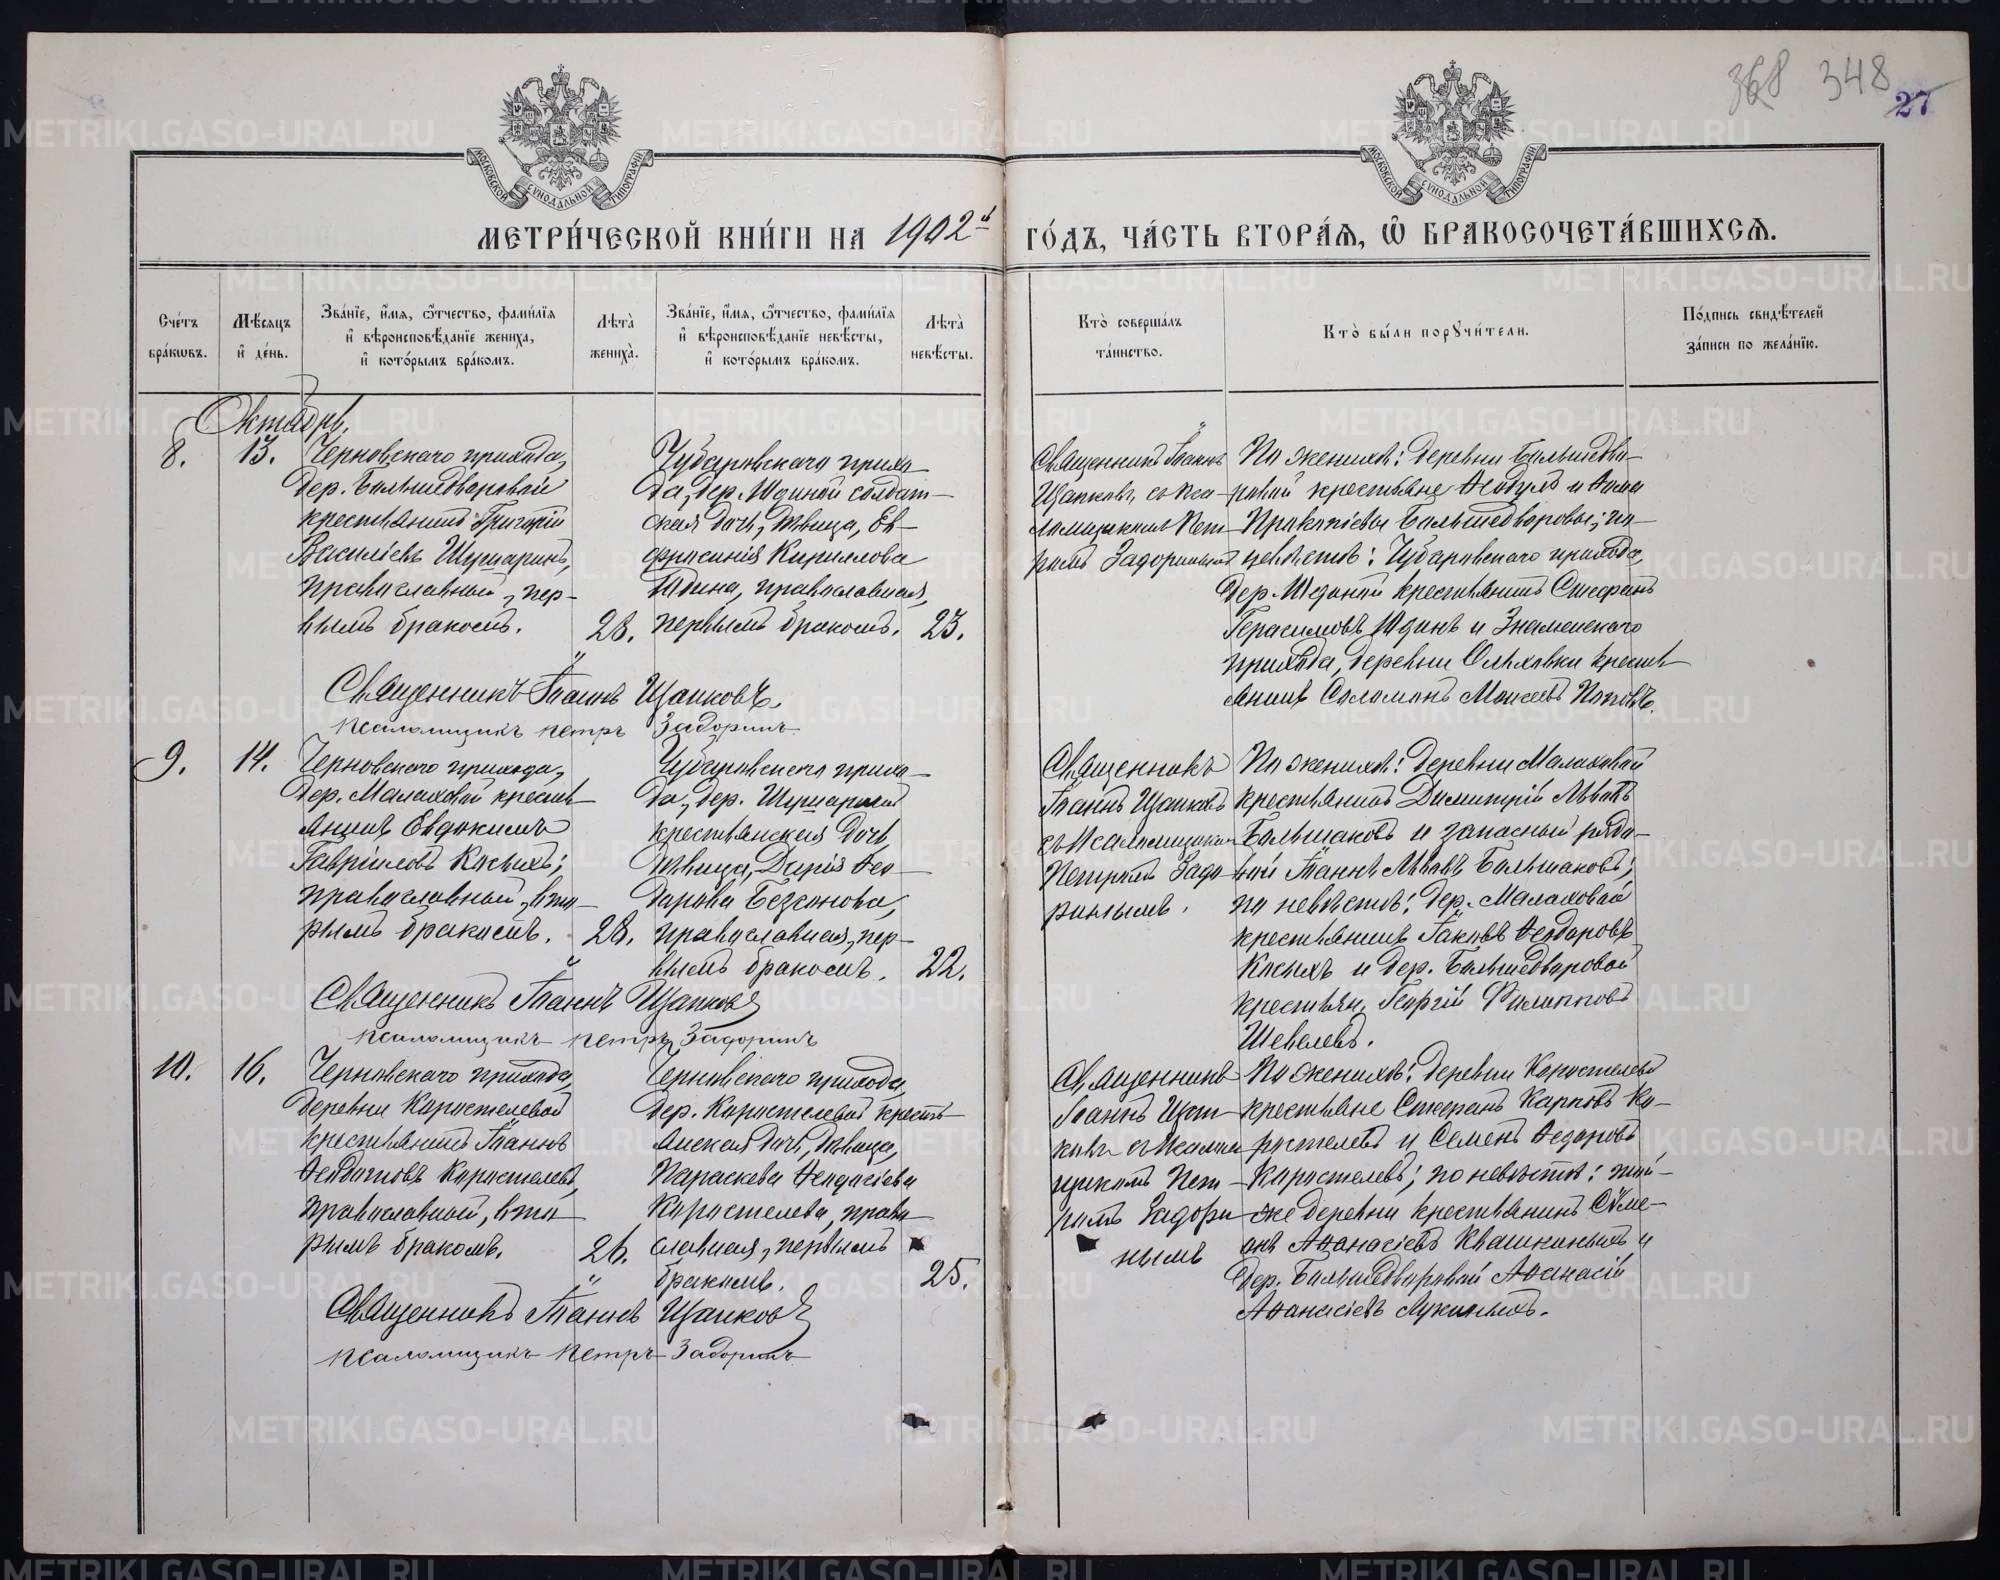 368 348
27
МОСКОВСКОЙ СѴНОДАЛЬНОЙ ТИПОГРАФІИ
МОСКОВСКОЙ СѴНОДАЛЬНОЙ ТИПОГРАФІИ
МЕТРИ́ЧЕСКОЙ КНИ́ГИ НА 1902й ГО́ДЪ, ЧА́СТЬ ВТОРА́Я, Ѡ БРАКОСОЧЕТА́ВШИХСЯ.
Сче́тъ бра́кѡвъ.
Мѣ́сяцъ и҆ де́нь.
Зва́нїе, и҆́мя, ѻ҆́тчество, фами́лїя и҆ вѣроисповѣ́данїе жениха̀, и҆ кото́рымъ бра́комъ.
Лѣта̀ жениха̀.
Зва́нїе, и҆́мя, ѻ҆́тчество, фами́лїя и҆ вѣроисповѣ́данїе невѣ́сты, и҆ кото́рымъ бра́комъ.
Лѣта̀ невѣ́сты.
Кто̀ соверша́лъ та́инство.
Кто̀ бы́ли порꙋчи́тели.
По́дпись свидѣ́телей за́писи по жела́нїю.
Октябрь.
8.
13.
Черновскаго прихода,
дер. Большедворовой
крестьянинъ Григорій
Василіевъ Шушаринъ,
православный, пер-
вымъ бракомъ.
28.
Чубаровскаго прихо-
да, дер. Юдиной солдат-
ская дочь, дѣвица, Ев-
фросинія Кириллова
Юдина, православная,
первымъ бракомъ.
23.
Священникъ Іоаннъ
Щапковъ съ пса-
ломщикомъ Пет-
ромъ Задоринымъ
По женихѣ: деревни Большедво-
ровой крестьяне Ѳеодулъ и Анна
Прокопіевы Большедворовы; по
невѣстѣ: Чубаровскаго прихода,
дер. Юдиной крестьянинъ Стефанъ
Герасимовъ Юдинъ и Знаменскаго
прихода, деревни Ольховки кресть
янинъ Соломонъ Моисеевъ Поповъ.
Священникъ Іоаннъ Щапковъ.
псаломщикъ петръ Задоринъ
9.
14.
Черновскаго прихода,
дер. Малаховой кресть
янинъ Евдокимъ
Гавріиловъ Косыхъ;
православный, вто-
рымъ бракомъ.
28.
Чубаровскаго прихо-
да, дер. Шушариной
крестьянская дочь,
дѣвица, Дарія Ѳео-
дорова Безсонова,
православная, пер-
вымъ бракомъ.
22.
Священникъ
Іоаннъ Щапковъ
съ псаломщикомъ
Петромъ Задо-
ринымъ.
По женихѣ: деревни Малаховой
крестьянинъ Димитрій Львовъ
Большаковъ и запасный рядо-
вой Іоаннъ Львовъ Большаковъ;
по невѣстѣ: дер. Малаховой
крестьянинъ Іаковъ Ѳеодоровъ
Косыхъ и дер. Большедворовой
крестьян. Георгій Филипповъ
Шевелевъ.
Священникъ Іоаннъ Щапковъ
псаломщикъ петръ Задоринъ
10.
16.
Черновскаго прихода,
деревни Коростелевой
крестьянинъ Іоаннъ
Ѳеодотовъ Коростелевъ,
православный, вто-
рымъ бракомъ.
26.
Черновскаго прихода,
дер. Коростелевой кресть-
янская дочь, дѣвица,
Параскева Ѳеодосіева
Коростелева, право-
славная, первымъ
бракомъ.
25.
Священникъ
Іоаннъ Щап-
ковъ съ псалом
щикомъ Пет-
ромъ Задори-
нымъ
По женихѣ: деревни Коростелевой
крестьяне Стефанъ Карповъ Ко-
ростелевъ и Семенъ Ѳедоровъ
Коростелевъ; по невѣстѣ: той-
же деревни крестьянинъ Сѵме-
онъ Аѳанасіевъ Квашниныхъ и
дер. Большедворовой Аѳанасій
Аѳанасіевъ Лукиныхъ.
Священникъ Іоаннъ Щапковъ
псаломщикъ петръ Задоринъ
METRIKI.GASO-URAL.RU